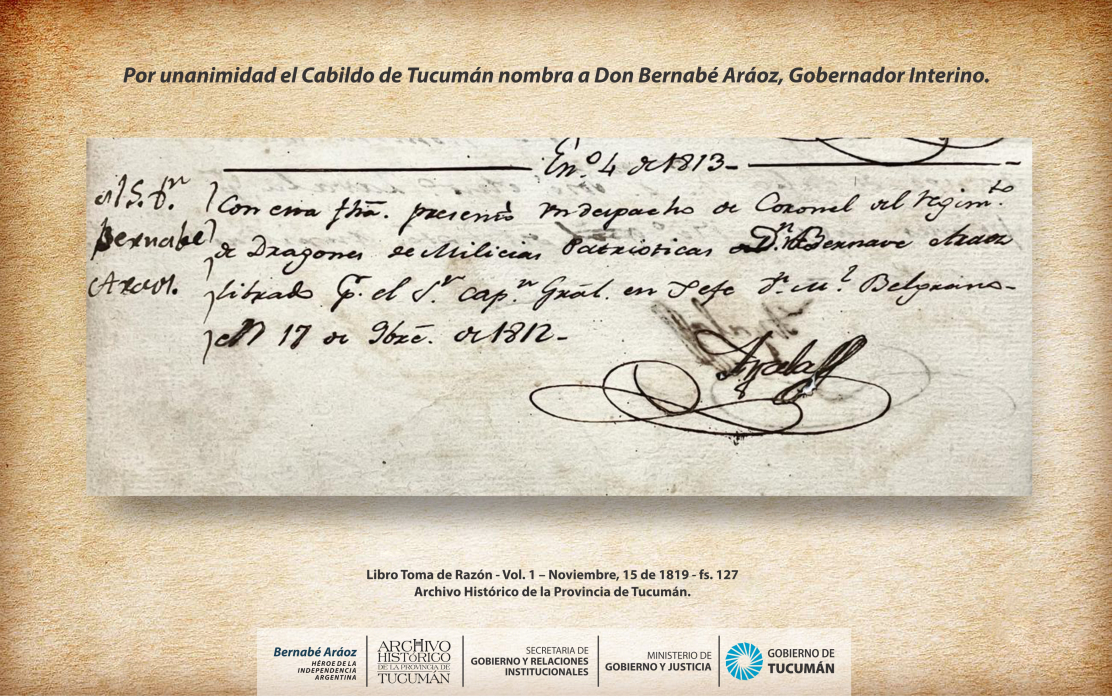 Por unanimidad el Cabildo de Tucumán nombra a Don Bernabé Aráoz, Gobernador Interino.
En.º 4 de 1813-
al S. D.n
Bernabe
Araoz.
Con esta fhâ. presentó un despacho de Coronel del Regim.to
de Dragones de Milicias Patrioticas D.n Bernave Araoz
librado p.r el S.r Cap.n Grâl. en Gefe D.n M.l Belgrano-
en 17 de 9brê. de 1812-
Libro Toma de Razón - Vol. 1 – Noviembre, 15 de 1819 - fs. 127
Archivo Histórico de la Provincia de Tucumán.
Bernabé Aráoz
HÉROE DE LA
INDEPENDENCIA
ARGENTINA
ARCHIVO
HISTÓRICO
DE LA PROVINCIA DE
TUCUMÁN
SECRETARIA DE
GOBIERNO Y RELACIONES
INSTITUCIONALES
MINISTERIO DE
GOBIERNO Y JUSTICIA
GOBIERNO DE
TUCUMÁN